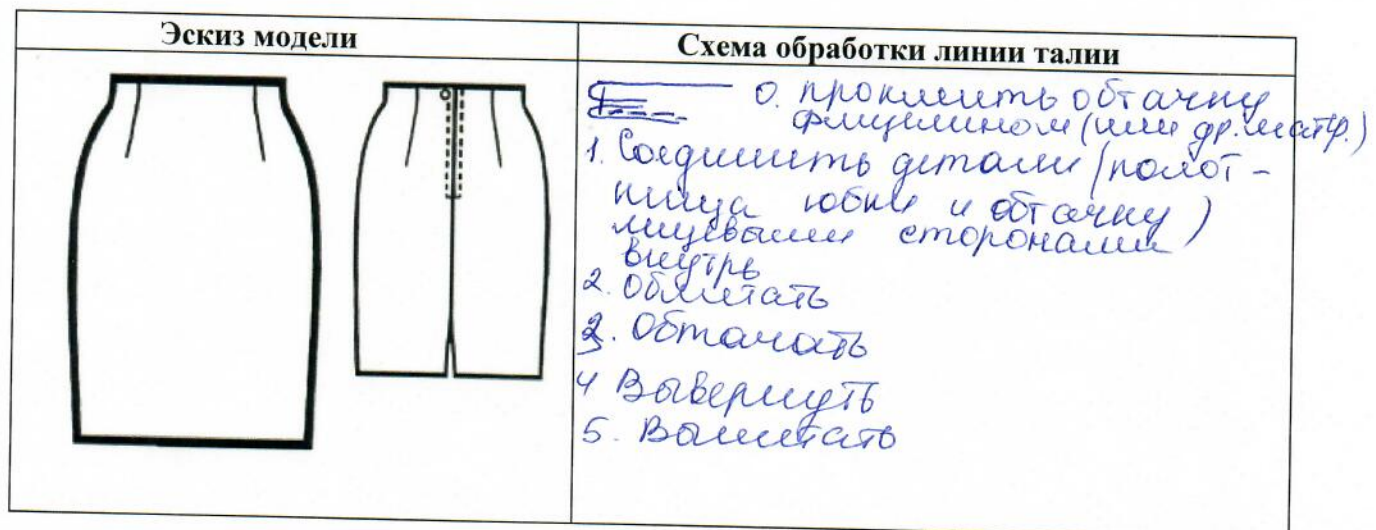 Эскиз модели
Схема обработки линии талии
0. проклеить обтачку
флизелином (или др. матер.)
1. Соединить детали (полот-
нища юбки и обтачку)
лицевыми сторонами
внутрь
2. Обметать
3. Обтачать
4 Вывернуть
5. Выметать